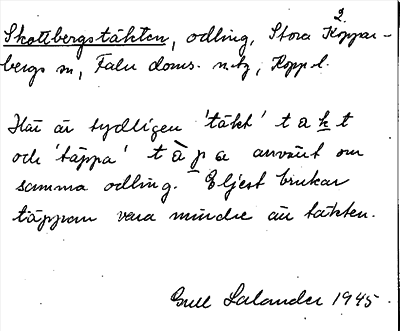 2.
Skottbergstäkten, odling, Stora Koppar-
bergs sn, Falu doms. ntg, Kopp. l.
Här är tydligen 'täkt' t a k t
och 'täppa' t à p a använt om
samma odling. Eljest brukar
täppan vara mindre än täkten.
Gull Salander 1945